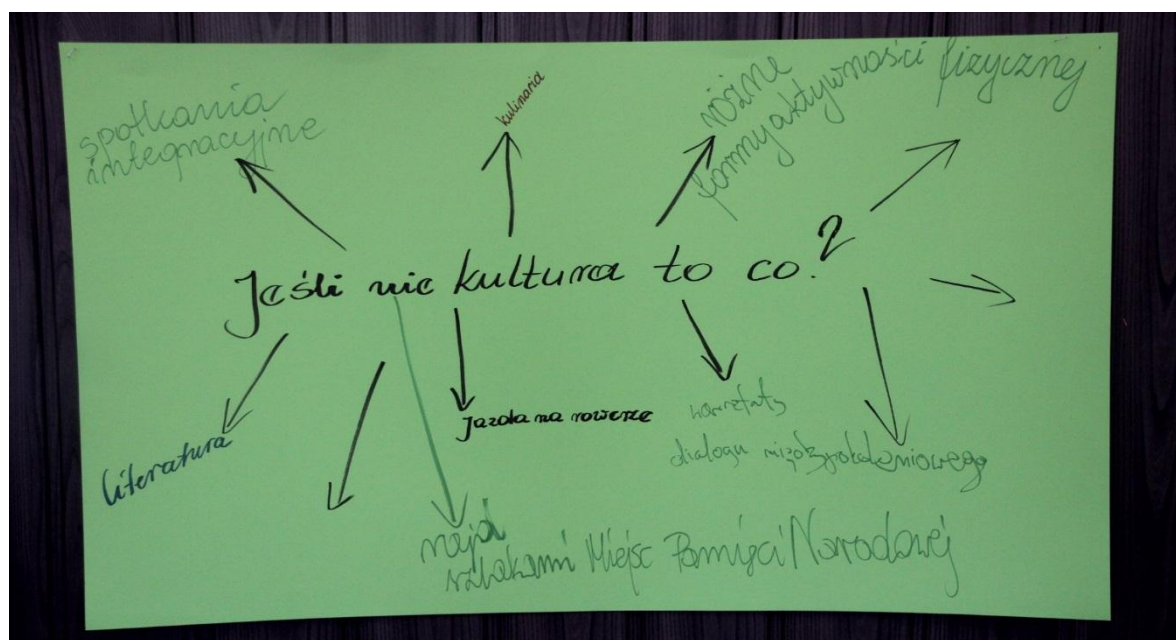 spotkania
integracyjne
kulinaria
różne
formy aktywności fizycznej
Jeśli nie kultura to co?
literatura
Jazda na rowerze
warsztaty
dialogu międzypokoleniowego
rajd
szlakami Miejsc Pamięci Narodowej